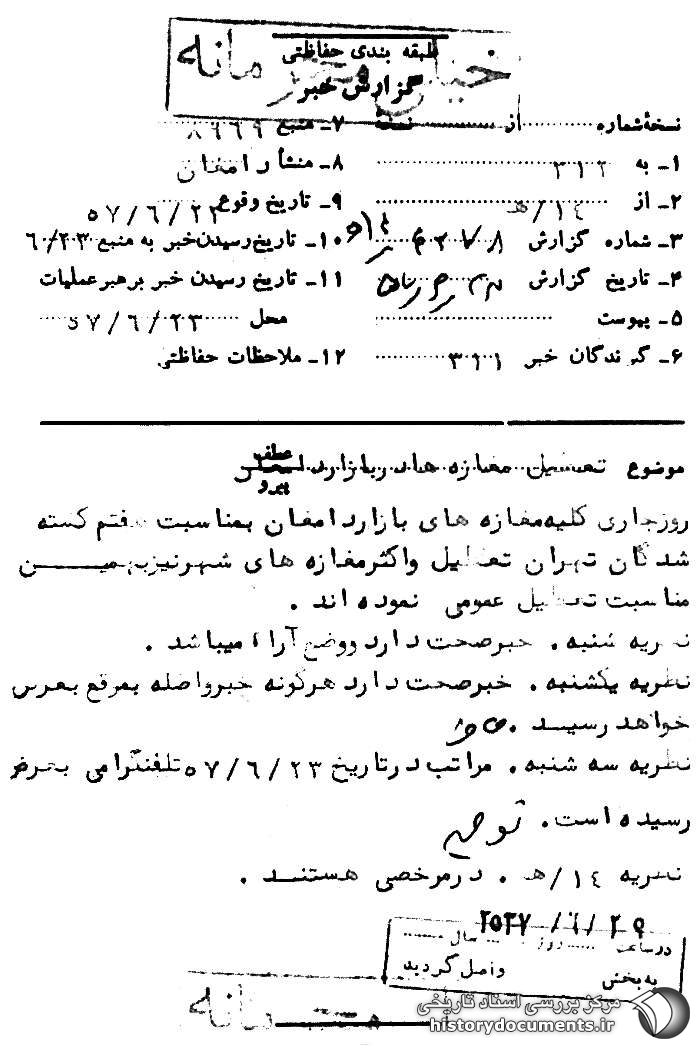 خیلی محرمانه
طبقه بندی حفاظتی
گزارش خبر
نسخهٔ شماره ............ از ............ نسخه
۱ـ به ۳۱۲
۲ـ از ۱۴/هـ
۳ـ شماره گزارش
۴ـ تاریخ گزارش
۵ـ پیوست
۶ـ گیرندگان خبر ۳۱۱
۷ـ منبع ۸۶۶۹
۸ـ منشأ دامغان
۹ـ تاریخ وقوع ۵۷/۶/۲۲
۱۰ـ تاریخ رسیدن خبر به منبع ۶/۲۳
۱۱ـ تاریخ رسیدن خبر برهبر عملیات
محل ۵۷/۶/۲۳
۱۲ـ ملاحظات حفاظتی
موضوع تعطیل مغازه ها در بازار دامغان
عطف
پیرو
روزجاری کلیه مغازه های بازار دامغان بمناسبت هفتم کشته
شدگان تهران تعطیل واکثرمغازه های شهرنیزبهمیـــن
مناسبت تعطیل عمومی نموده اند .
نظریه شنبه . خبرصحت دارد ووضع آرام میباشد .
نظریه یکشنبه . خبرصحت دارد هرگونه خبرواصله بموقع بعرض
خواهد رسیـد .
نظریه سه شنبه . مراتب درتاریخ ۵۷/۶/۲۳ تلفنگرامی بعرض
رسیده است .
نظریه ۱۴/هـ . درمرخصی هستنـد .
۲۵۳۷/۶/۲۹
درساعت ........ روز ........ سال ........
به بخش واصل گردید
مرکز بررسی اسناد تاریخی
historydocuments.ir